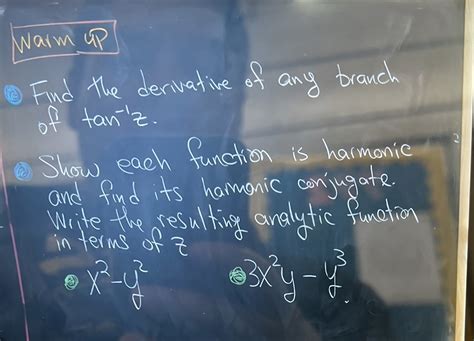 Warm up
Find the derivative of any branch
of tan⁻¹z.
Show each function is harmonic
and find its harmonic conjugate.
Write the resulting analytic function
in terms of z
x²-y² 3x²y-y³.